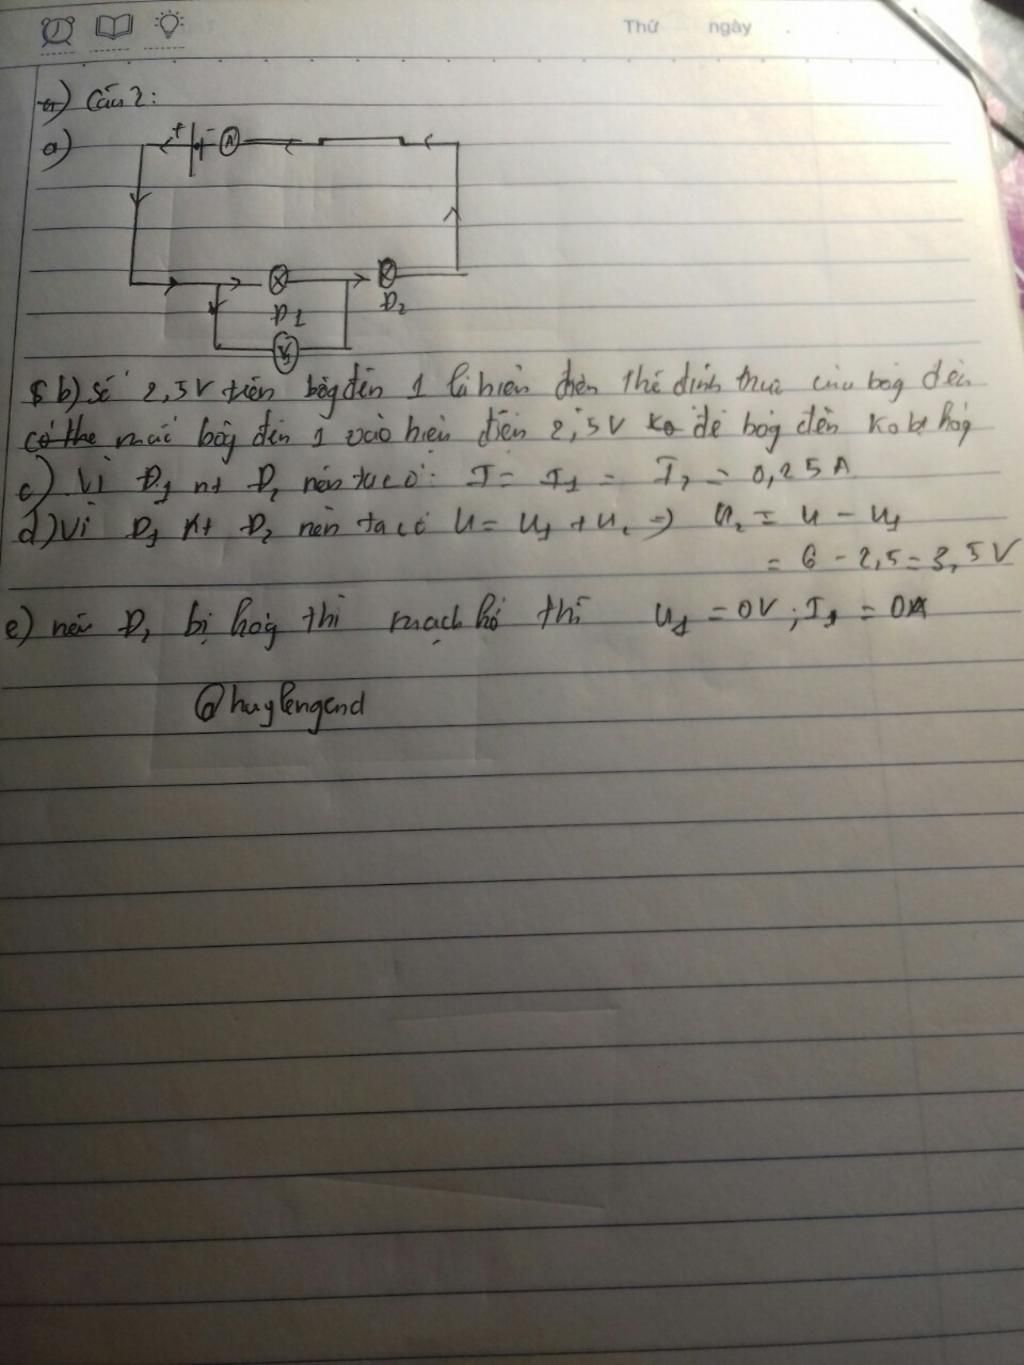 Thứ ngày
a) Câu 2:
a)
+ - A
Đ1 Đ2
V1
b) Số 2,5V trên bóg đèn 1 là hiệu điện thế định mức của bóg đèn
có thể mắc bóg đèn 1 vào hiệu điện 2,5V để bóg đèn ko bị hỏg
c) Vì Đ1 nt Đ2 nên ta có: I = I1 = I2 = 0,25A
d) Vì Đ1 nt Đ2 nên ta có U = U1 + U2 => U2 = U - U1
= 6 - 2,5 = 3,5V
e) nếu Đ1 bị hỏg thì mạch hở thì U1 = 0V ; I1 = 0A
@huylengend